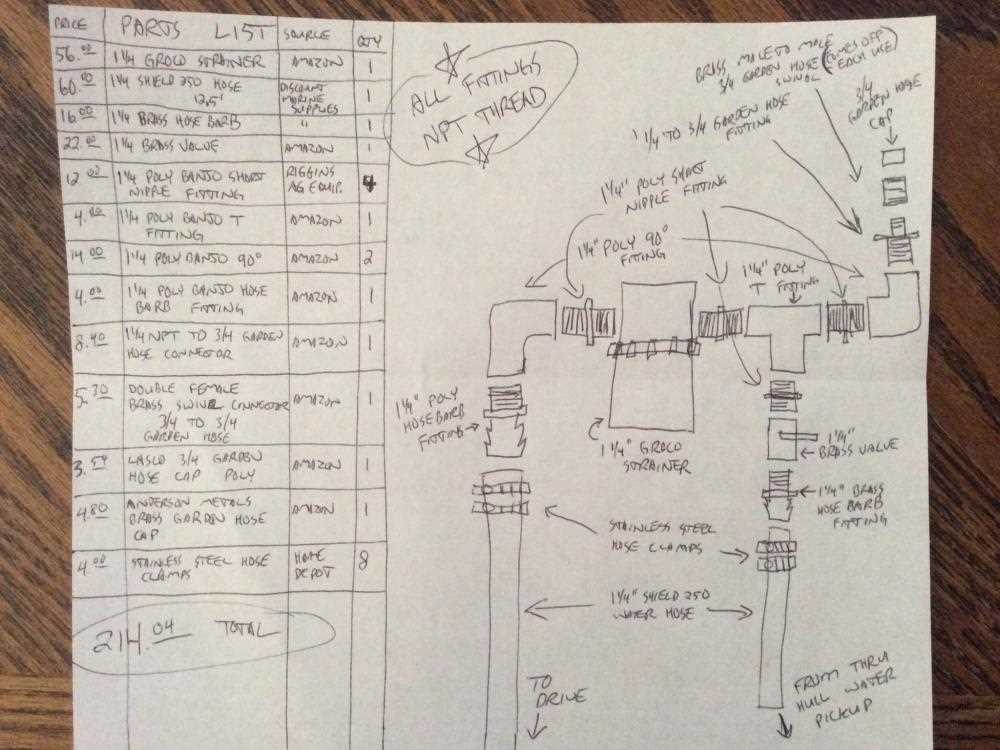 PRICE PARTS LIST SOURCE QTY
56.00 1 1/4 GROCO STRAINER AMAZON 1
60.00 1 1/4 SHIELD 250 HOSE DISCOUNT 1
12.5' MARINE
SUPPLIES
16.00 1 1/4 BRASS HOSE BARB " 1
22.00 1 1/4 BRASS VALVE AMAZON 1
12.00 1 1/4 POLY BANJO SHORT RIGGINS 4
NIPPLE FITTING AG EQUIP.
4.00 1 1/4 POLY BANJO T AMAZON 1
FITTING
14.00 1 1/4 POLY BANJO 90° AMAZON 2
4.00 1 1/4 POLY BANJO HOSE AMAZON 1
BARB FITTING
8.40 1 1/4 NPT TO 3/4 GARDEN AMAZON 1
HOSE CONNECTOR
5.30 DOUBLE FEMALE
BRASS SWIVEL CONNECTOR AMAZON 1
3/4 TO 3/4
GARDEN HOSE
3.54 LASCO 3/4 GARDEN AMAZON 1
HOSE CAP POLY
4.80 ANDERSON METALS AMAZON 1
BRASS GARDEN HOSE
CAP
4.00 STAINLESS STEEL HOSE HOME 8
CLAMPS DEPOT
214.04 TOTAL
ALL FITTINGS
NPT THREAD
BRASS MALE TO MALE
3/4 GARDEN HOSE
SWIVL
(COMES OFF
EACH USE)
3/4
GARDEN HOSE
CAP
1 1/4 TO 3/4 GARDEN HOSE
FITTING
1 1/4" POLY SHORT
NIPPLE FITTING
1 1/4" POLY 90°
FITTING
1 1/4" POLY
T FITTING
1 1/4" POLY
HOSE BARB
FITTING
1 1/4" GROCO
STRAINER
1 1/4"
BRASS VALVE
1 1/4" BRASS
HOSE BARB
FITTING
STAINLESS STEEL
HOSE CLAMPS
1 1/4" SHIELD 250
WATER HOSE
TO
DRIVE
FROM THRU
HULL WATER
PICKUP